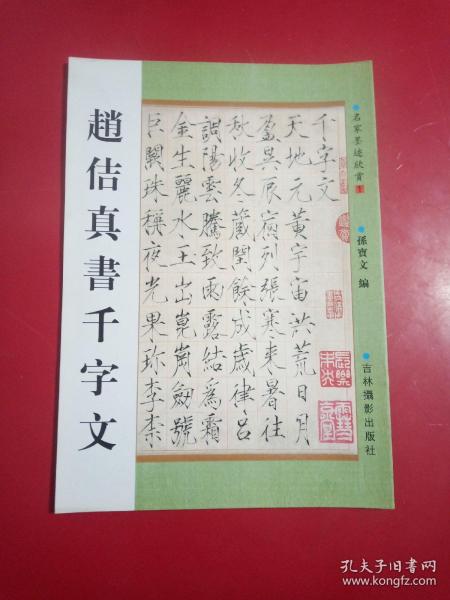 趙佶真書千字文
千字文
天地元黃宇宙洪荒日月
盈昃辰宿列張寒來暑往
秋收冬藏閏餘成歲律呂
調陽雲騰致雨露結爲霜
金生麗水玉出崑崗劍號
巨闕珠稱夜光果珍李柰
名家墨迹欣賞 1
孫寶文 編
吉林攝影出版社
孔夫子旧书网
www.kongfz.com